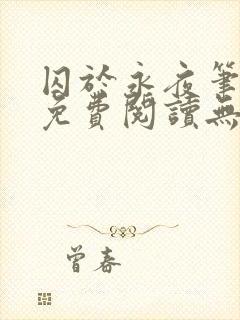 囚於永夜筆
免費閱讀無
曾春